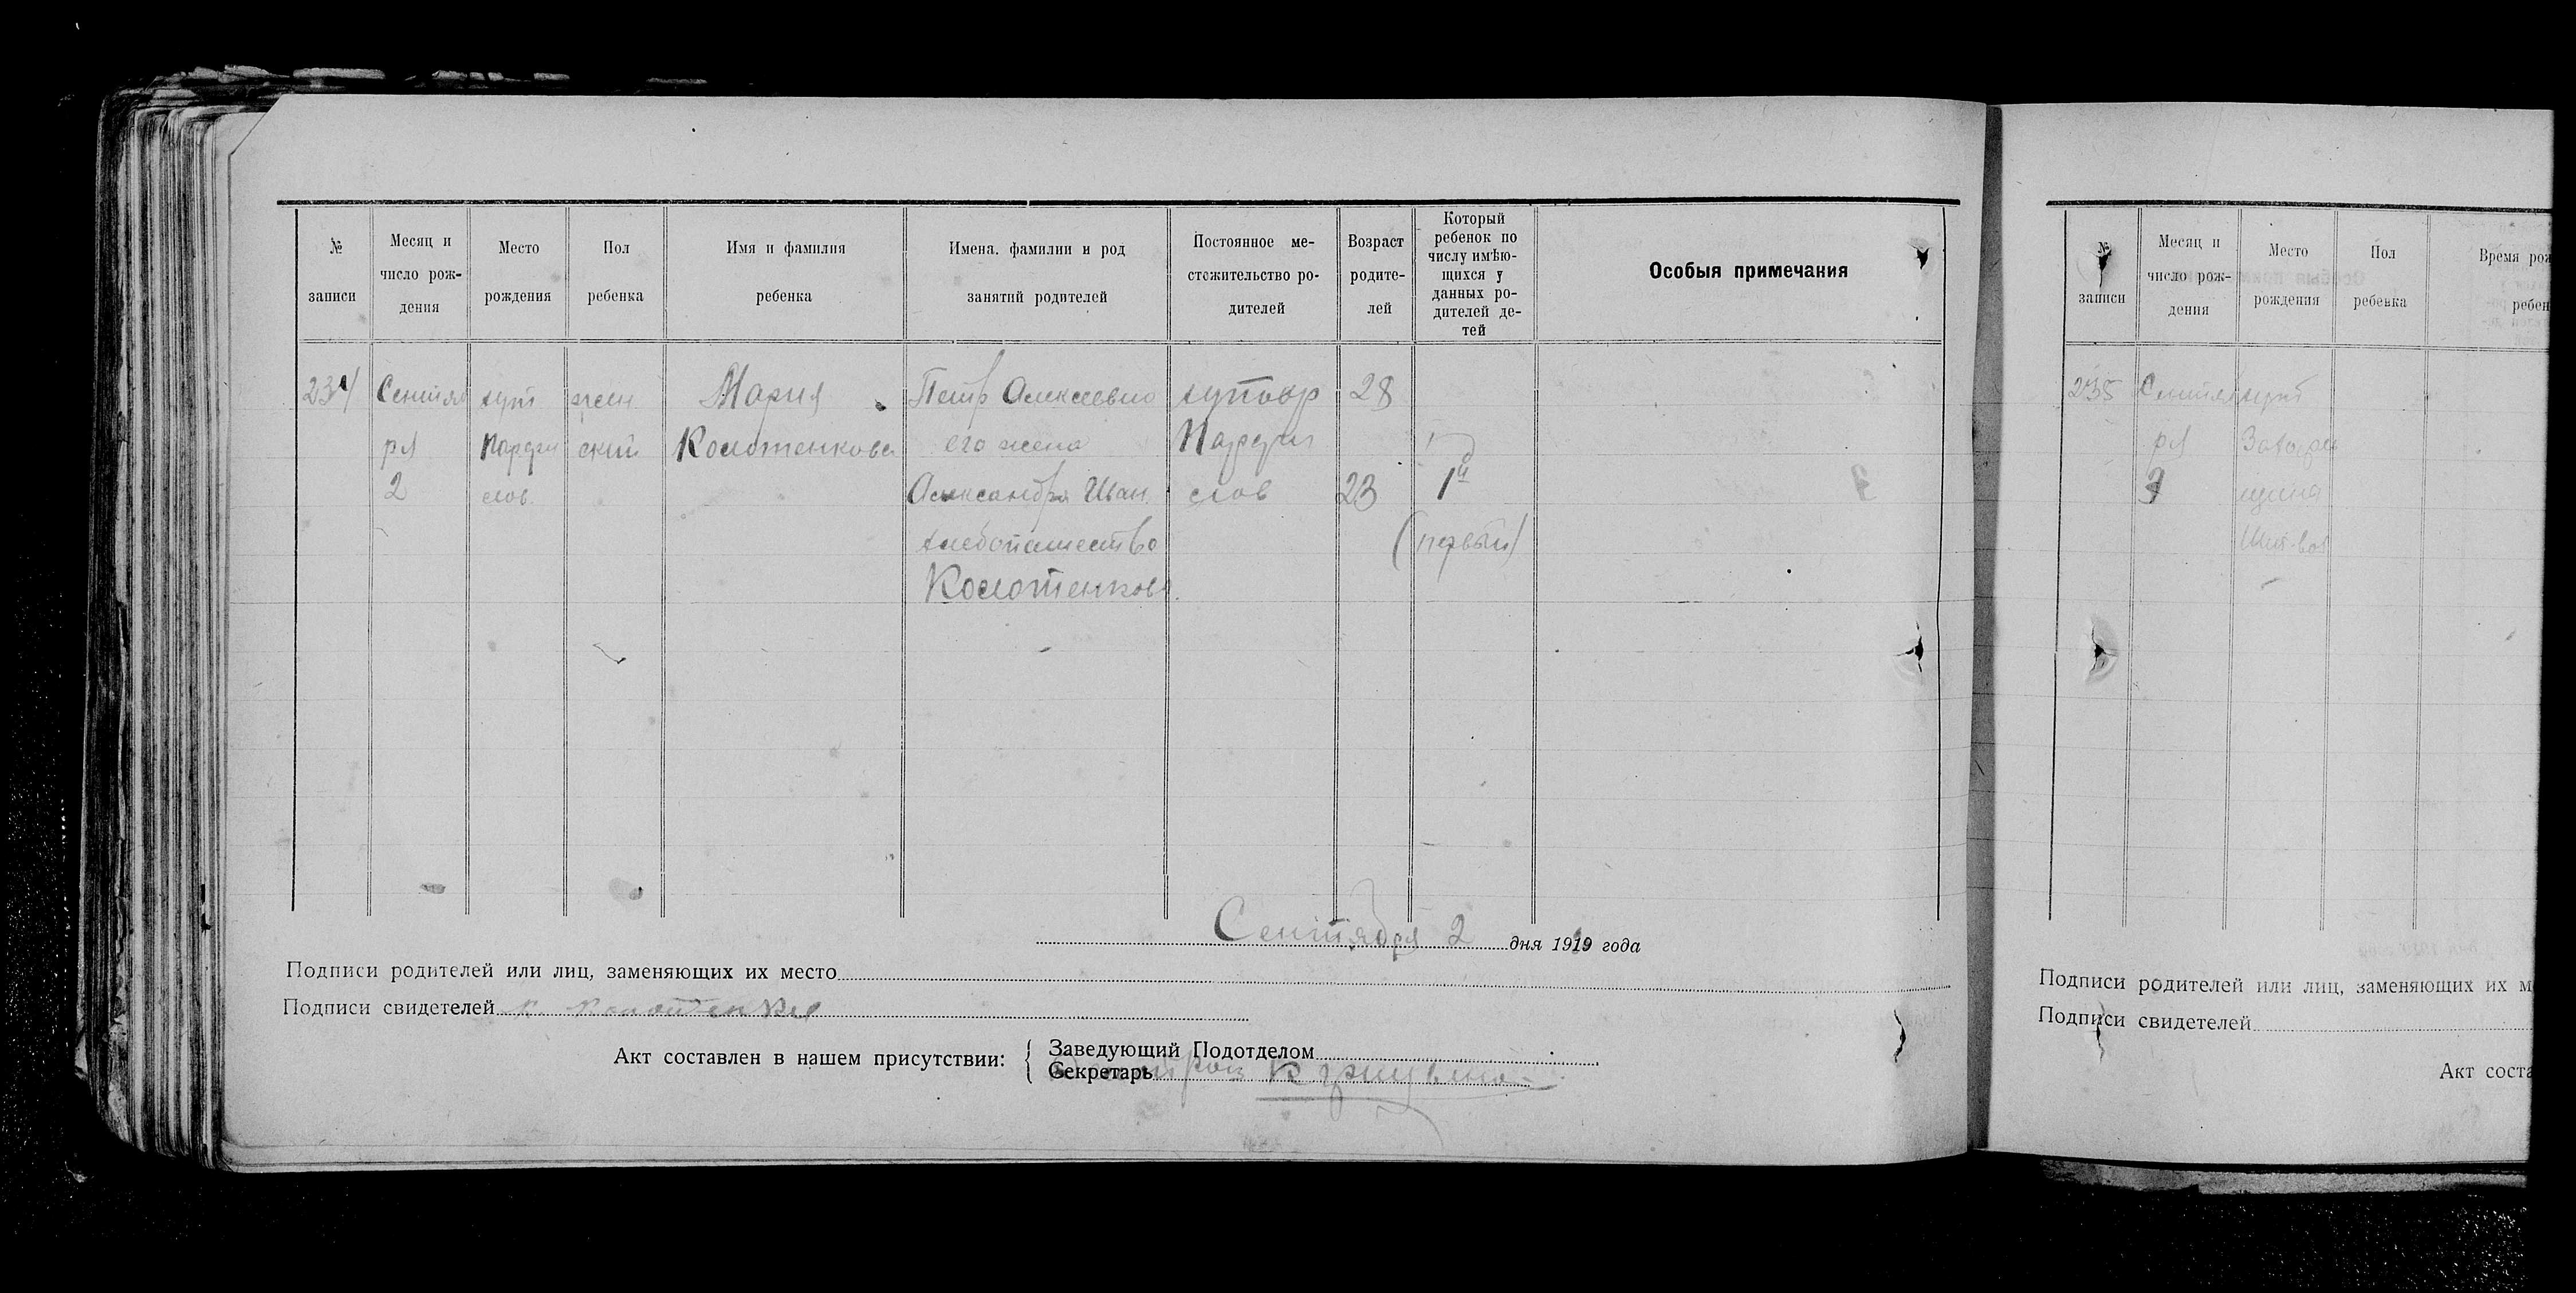 № записи
Месяц и число рож-дения
Место рождения
Пол ребенка
Имя и фамилия ребенка
Имена, фамилии и род занятий родителей
Постоянное ме-стожительство ро-дителей
Возраст родите-лей
Который ребенок по числу имѣю-щихся у данных ро-дителей де-тей
Особыя примечания
234
Сентяб
ря
2
хут
слов.
жен
ский
Мария
Колотенкова
Петр Алексеевич
его жена
Александра Иван.
хлебопашество
Колотенковы
хутор
слов
28
23
1й
(первый)
Сентября 2 дня 1919 года
Подписи родителей или лиц, заменяющих их место
Подписи свидетелей К. Колотенков
Акт составлен в нашем присутствии:
Заведующий Подотделом
Секретарь
№ записи
Месяц и число рож-дения
Место рождения
Пол ребенка
Время рож
ребен
235
ря
хут
Подписи родителей или лиц, заменяющих их м
Подписи свидетелей
Акт соста